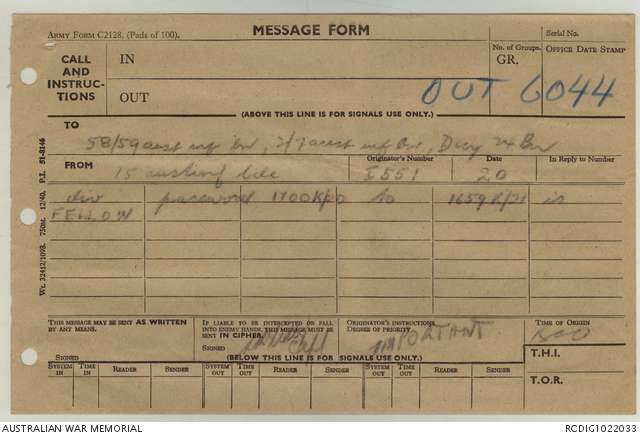 ARMY FORM C2128. (Pads of 100).
MESSAGE FORM
Serial No.
CALL AND INSTRUC- TIONS
IN
No. of Groups.
GR.
OFFICE DATE STAMP
OUT
OUT 6044
(ABOVE THIS LINE IS FOR SIGNALS USE ONLY.)
TO
58/59 aust inf Bn, 2/7 aust inf Bn, Bn
FROM
Originator's Number
Date
In Reply to Number
15 aust inf bde
I551
20
div password 1700K/20 to 1659K/21 is
FELLOW
Wt. 32412/1098. 750M. 12/40. P.I. 51-8146
THIS MESSAGE MAY BE SENT AS WRITTEN BY ANY MEANS.
IF LIABLE TO BE INTERCEPTED OR FALL INTO ENEMY HANDS, THIS MESSAGE MUST BE SENT IN CIPHER.
ORIGINATOR'S INSTRUCTIONS DEGREE OF PRIORITY
TIME OF ORIGIN
IMPORTANT
SIGNED
SIGNED
(BELOW THIS LINE IS FOR SIGNALS USE ONLY.)
T.H.I.
SYSTEM IN
TIME IN
READER
SENDER
SYSTEM OUT
TIME OUT
READER
SENDER
SYSTEM OUT
TIME OUT
READER
SENDER
T.O.R.
AUSTRALIAN WAR MEMORIAL
RCDIG1022033